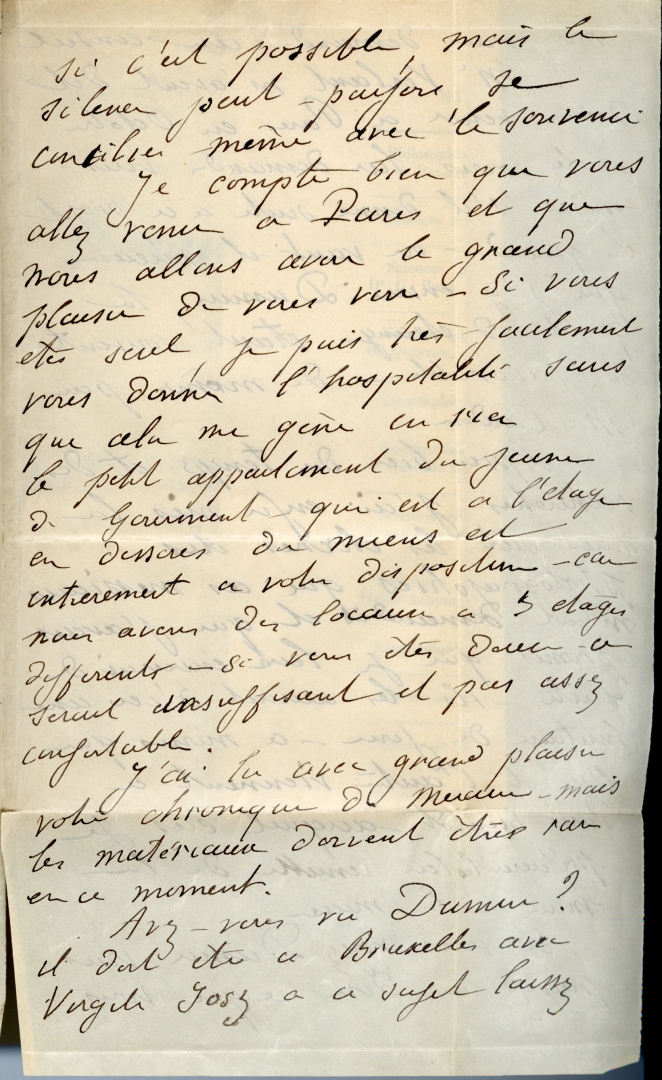 si c'est possible, mais le
silence peut - parfois se
concilier même avec le souvenir
Je compte bien que vous
allez venir a Paris et que
nous allons avoir le grand
plaisir de vous voir - Si vous
etes seul, je puis très facilement
vous donner l'hospitalité sans
que cela me gène en rien
le petit appartement du jeune
de Gourmont - qui est a l'étage
en dessous du mien est
entierement a votre disposition - car
nous avons des locaux a 3 etages
differents - Si vous êtes deux - ce
serait insuffisant et pas assez
confortable.
J'ai lu avec grand plaisir
votre chronique du Mercure - mais
les matériaux doivent êtres rares
en ce moment.
Avez - vous vu Dumur ?
il doit etre a Bruxelles avec
Virgile Josz a ce sujet laissez